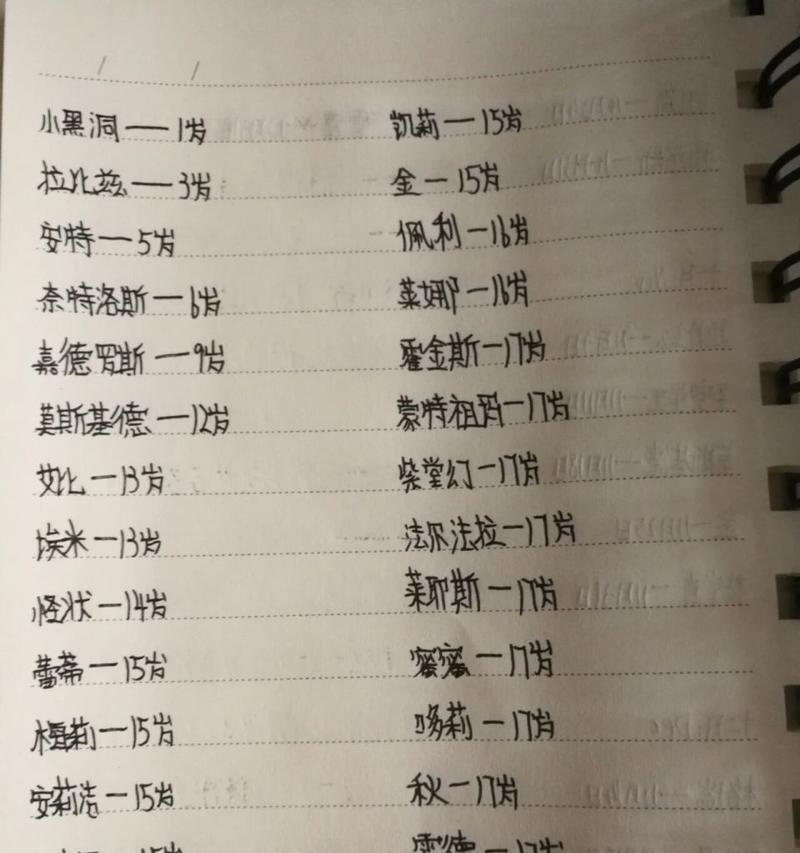 小黑洞——1岁
拉比兹——3岁
安特—5岁
奈特洛斯—6岁
嘉德罗斯—9岁
莫斯基德—12岁
艾比—13岁
埃米—13岁
怪状—14岁
蕾蒂—15岁
梅莉—15岁
安莉洁—15岁
15岁
凯莉—15岁
金—15岁
佩利—16岁
莱娜—16岁
霍金斯—17岁
蒙特祖玛—17岁
紫堂幻—17岁
法尔法拉—17岁
莱耶斯—17岁
蜜蜜—17岁
哆莉—17岁
秋—17岁
雷德—17岁